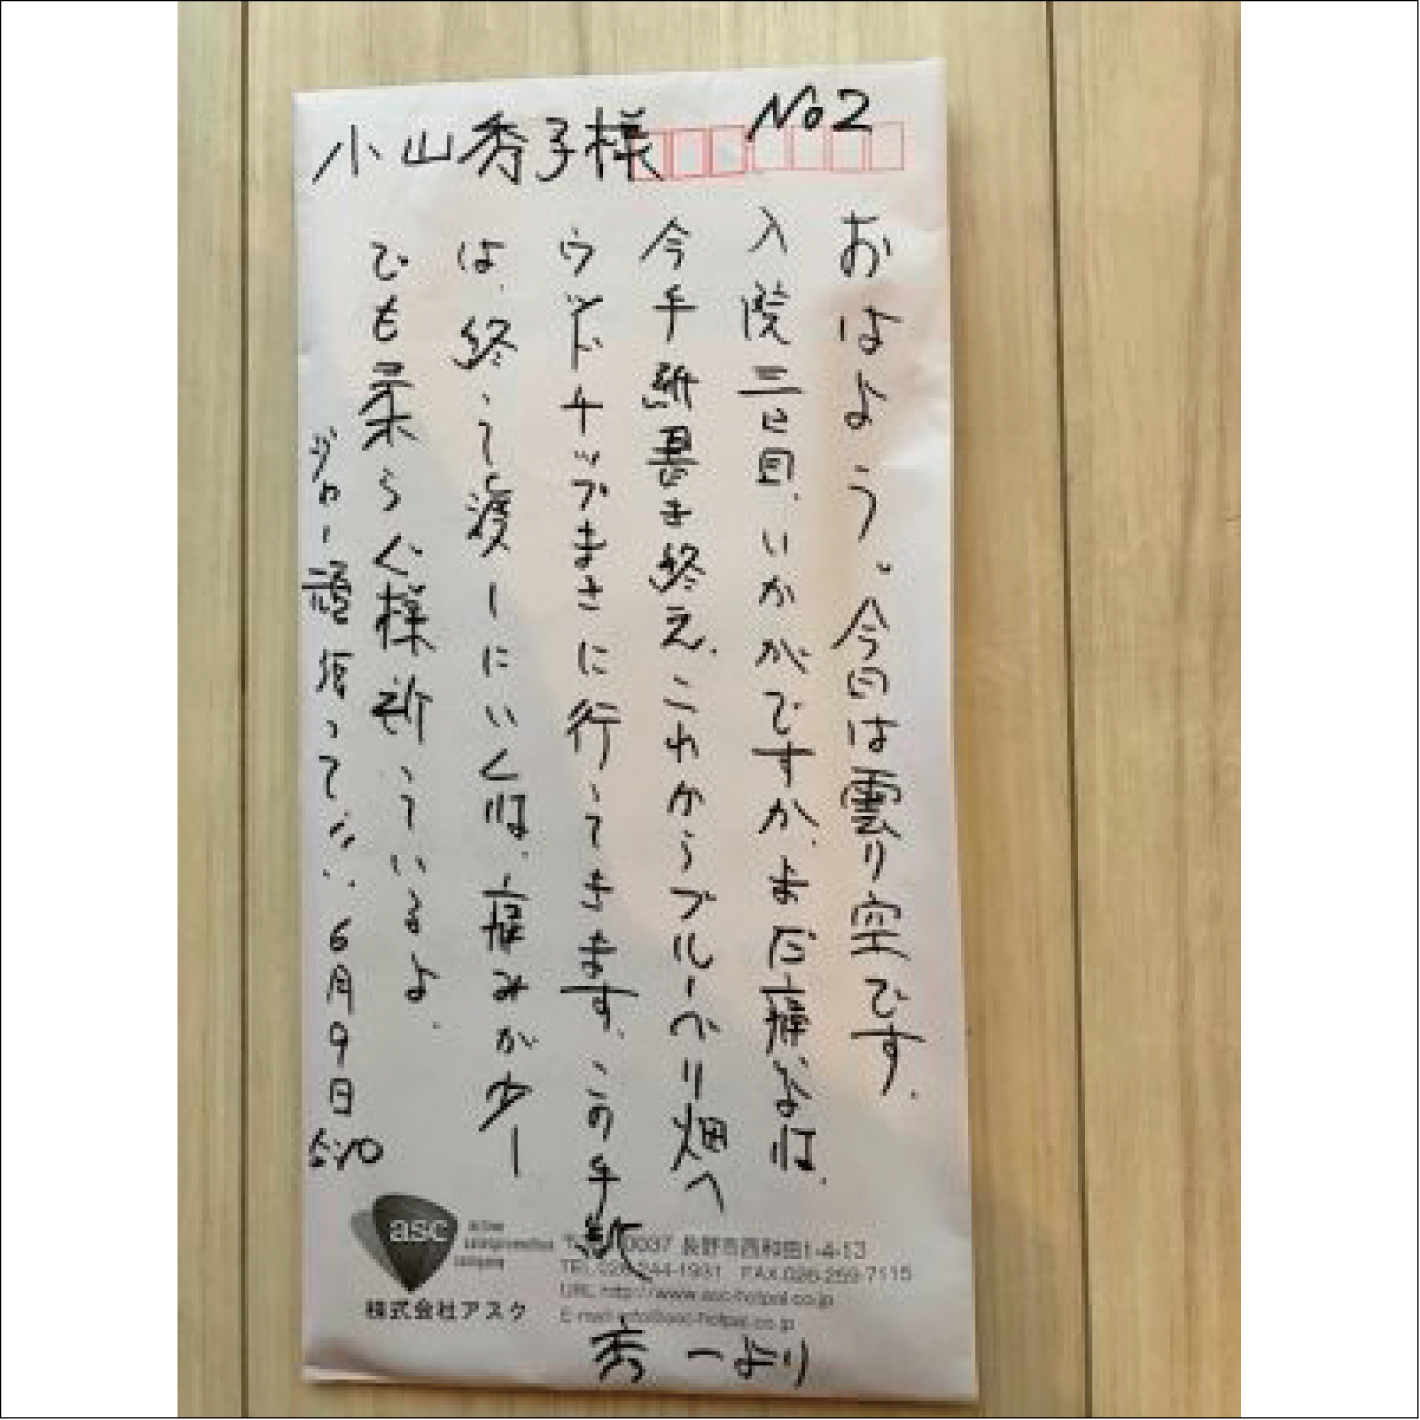 小山秀子様
No2
おはよう。今日は曇り空です。
入院三日目、いかがですか、まだ痛よね。
今手紙書き終え、これからブルーベリ畑へ
ウッドチップまきに行ってきます、この手紙
は、終って渡しにいくね、痛みが少し
でも柔らぐ様祈っているよ、
じゃー頑張って 6月9日
5:10
秀一より
asc
0037 長野市西和田1-4-13
TEL.026-244-1931 FAX.026-259-7115
URL http://www.asc-hotpal.co.jp
E-mail info@asc-hotpal.co.jp
株式会社アスク